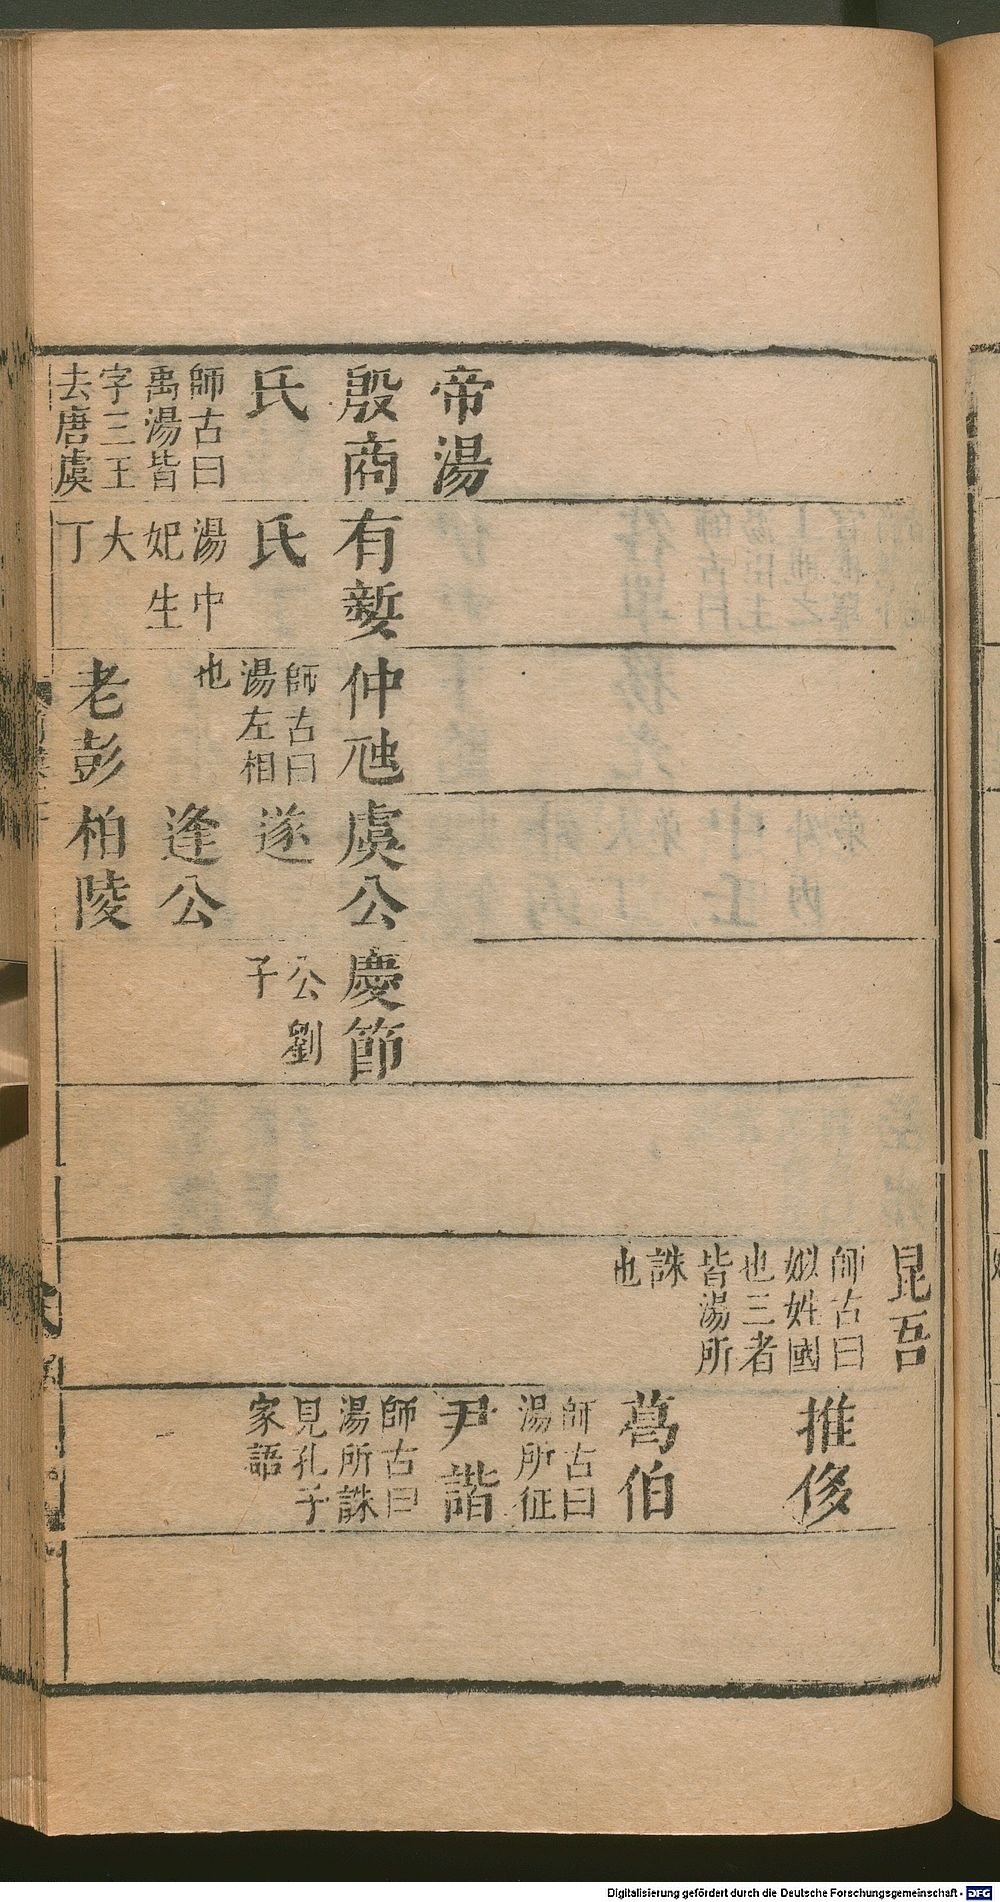 帝湯
殷商
氏
師古曰
禹湯皆
字三王
去唐虞
有㜪
氏
湯中
妃生
大
丁
仲虺
師古曰
湯左相
也
老彭
虞公
遂
逢公
柏陵
慶節
公劉
子
昆吾
師古曰
姒姓國
也三者
皆湯所
誅
也
推侈
葛伯
師古曰
湯所征
尹諧
師古曰
湯所誅
見孔子
家語
Digitalisierung gefördert durch die Deutsche Forschungsgemeinschaft - DFG